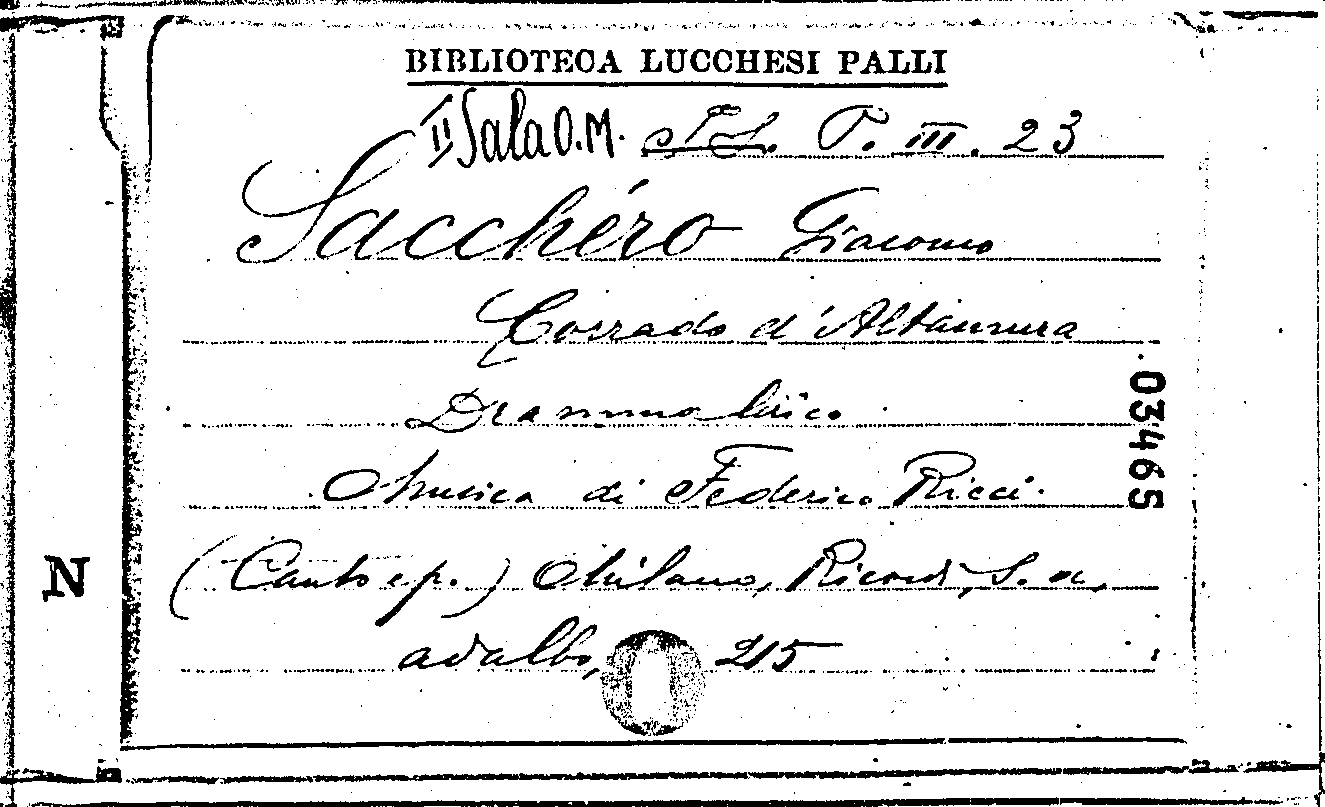 BIBLIOTECA LUCCHESI PALLI
II Sala O.M. P. III. 23
Sacchéro Giacomo
Corrado d'Altamura
Dramma lirico
Musica di Federico Ricci.
(Canto e p.) Milano, Ricordi, s. a,
ad albo, 215
03465
N